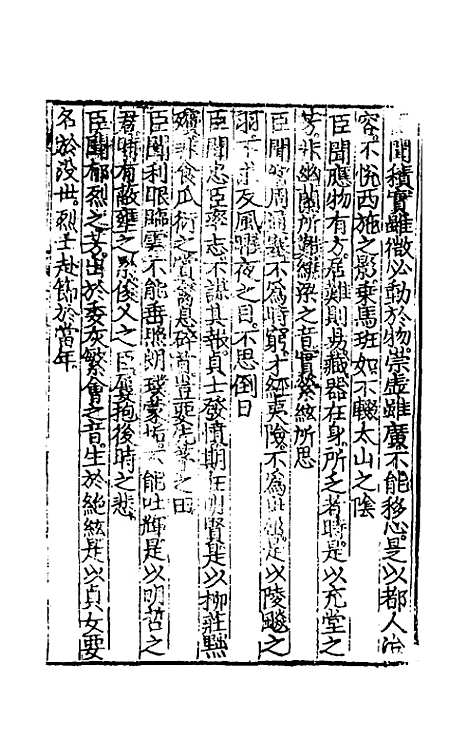 聞積實雖微必動於物崇虛雖廣不能移心是以都人冶
容不悅西施之影乗馬班如不輟太山之陰
臣聞應物有方居難則易藏器在身所乏者時是以充堂之
芳非幽蘭所難繞梁之音實縈絃所思
臣聞智周通塞不為時窮才經夷險不為世屈是以陵飈之
羽不求反風曜夜之目不思倒日
臣聞忠臣率志不謀其報貞士發憤期在明賢是以柳莊黜
殯非貪瓜衍之賞禽息碎首豈要先茅之田
臣聞利眼臨雲不能垂照朗璞蒙垢不能吐輝是以明哲之
君時有蔽壅之累俊乂之臣屢抱後時之悲
臣聞郁烈之芳出於委灰繁會之音生於絶絃是以貞女要
名於沒世烈士赴節於當年